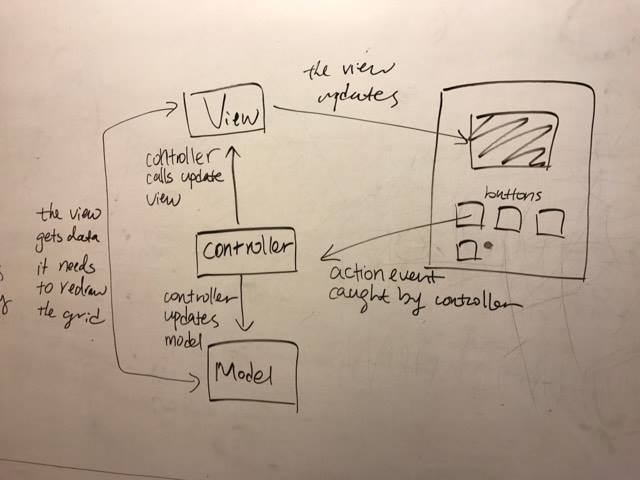 the view
updates
View
controller
calls update
view
buttons
the view
gets data
it needs
to redraw
the grid
controller
action event
caught by controller
controller
updates
model
Model